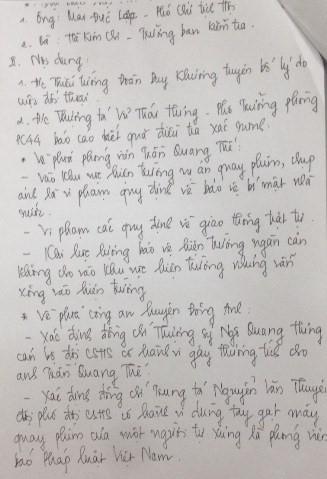 1. Ông: Mai Đức Lộc - Phó Chủ tịch TT
2. Bà: Hà Kim Chi - Trưởng ban kiểm tra.
II. Nội dung:
1. Đ/c Thiếu tướng Đoàn Duy Khương tuyên bố lý do
cuộc đối thoại.
2. Đ/c Thượng tá Vũ Thái Hưng - Phó Trưởng phòng
PC44 báo cáo kết quả điều tra xác minh.
* Về phía phóng viên Trần Quang Thế:
- Vào khu vực hiện trường vụ án quay phim, chụp
ảnh là vi phạm quy định về bảo vệ bí mật nhà
nước.
- Vi phạm các quy định về giao thông trật tự.
- Khi lực lượng bảo vệ hiện trường ngăn cản
không cho vào khu vực hiện trường nhưng vẫn
xông vào hiện trường.
* Về phía công an huyện Đông Anh:
- Xác định đồng chí Thượng sỹ Ngô Quang Hưng
cán bộ đội CSHS có hành vi gây thương tích cho
anh Trần Quang Thế.
- Xác định đồng chí Trung tá Nguyễn Văn Thuyên
đội phó đội CSHS có hành vi dùng tay gạt máy
quay phim của một người tự xưng là phóng viên
báo Pháp luật Việt Nam.